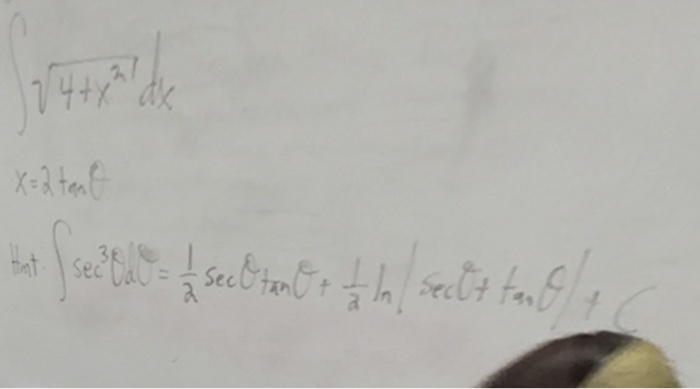 ∫√(4+x²) dx
x=2tanθ
Hint: ∫sec³θdθ = 1/2 secθtanθ + 1/2 ln|secθ + tanθ| + C